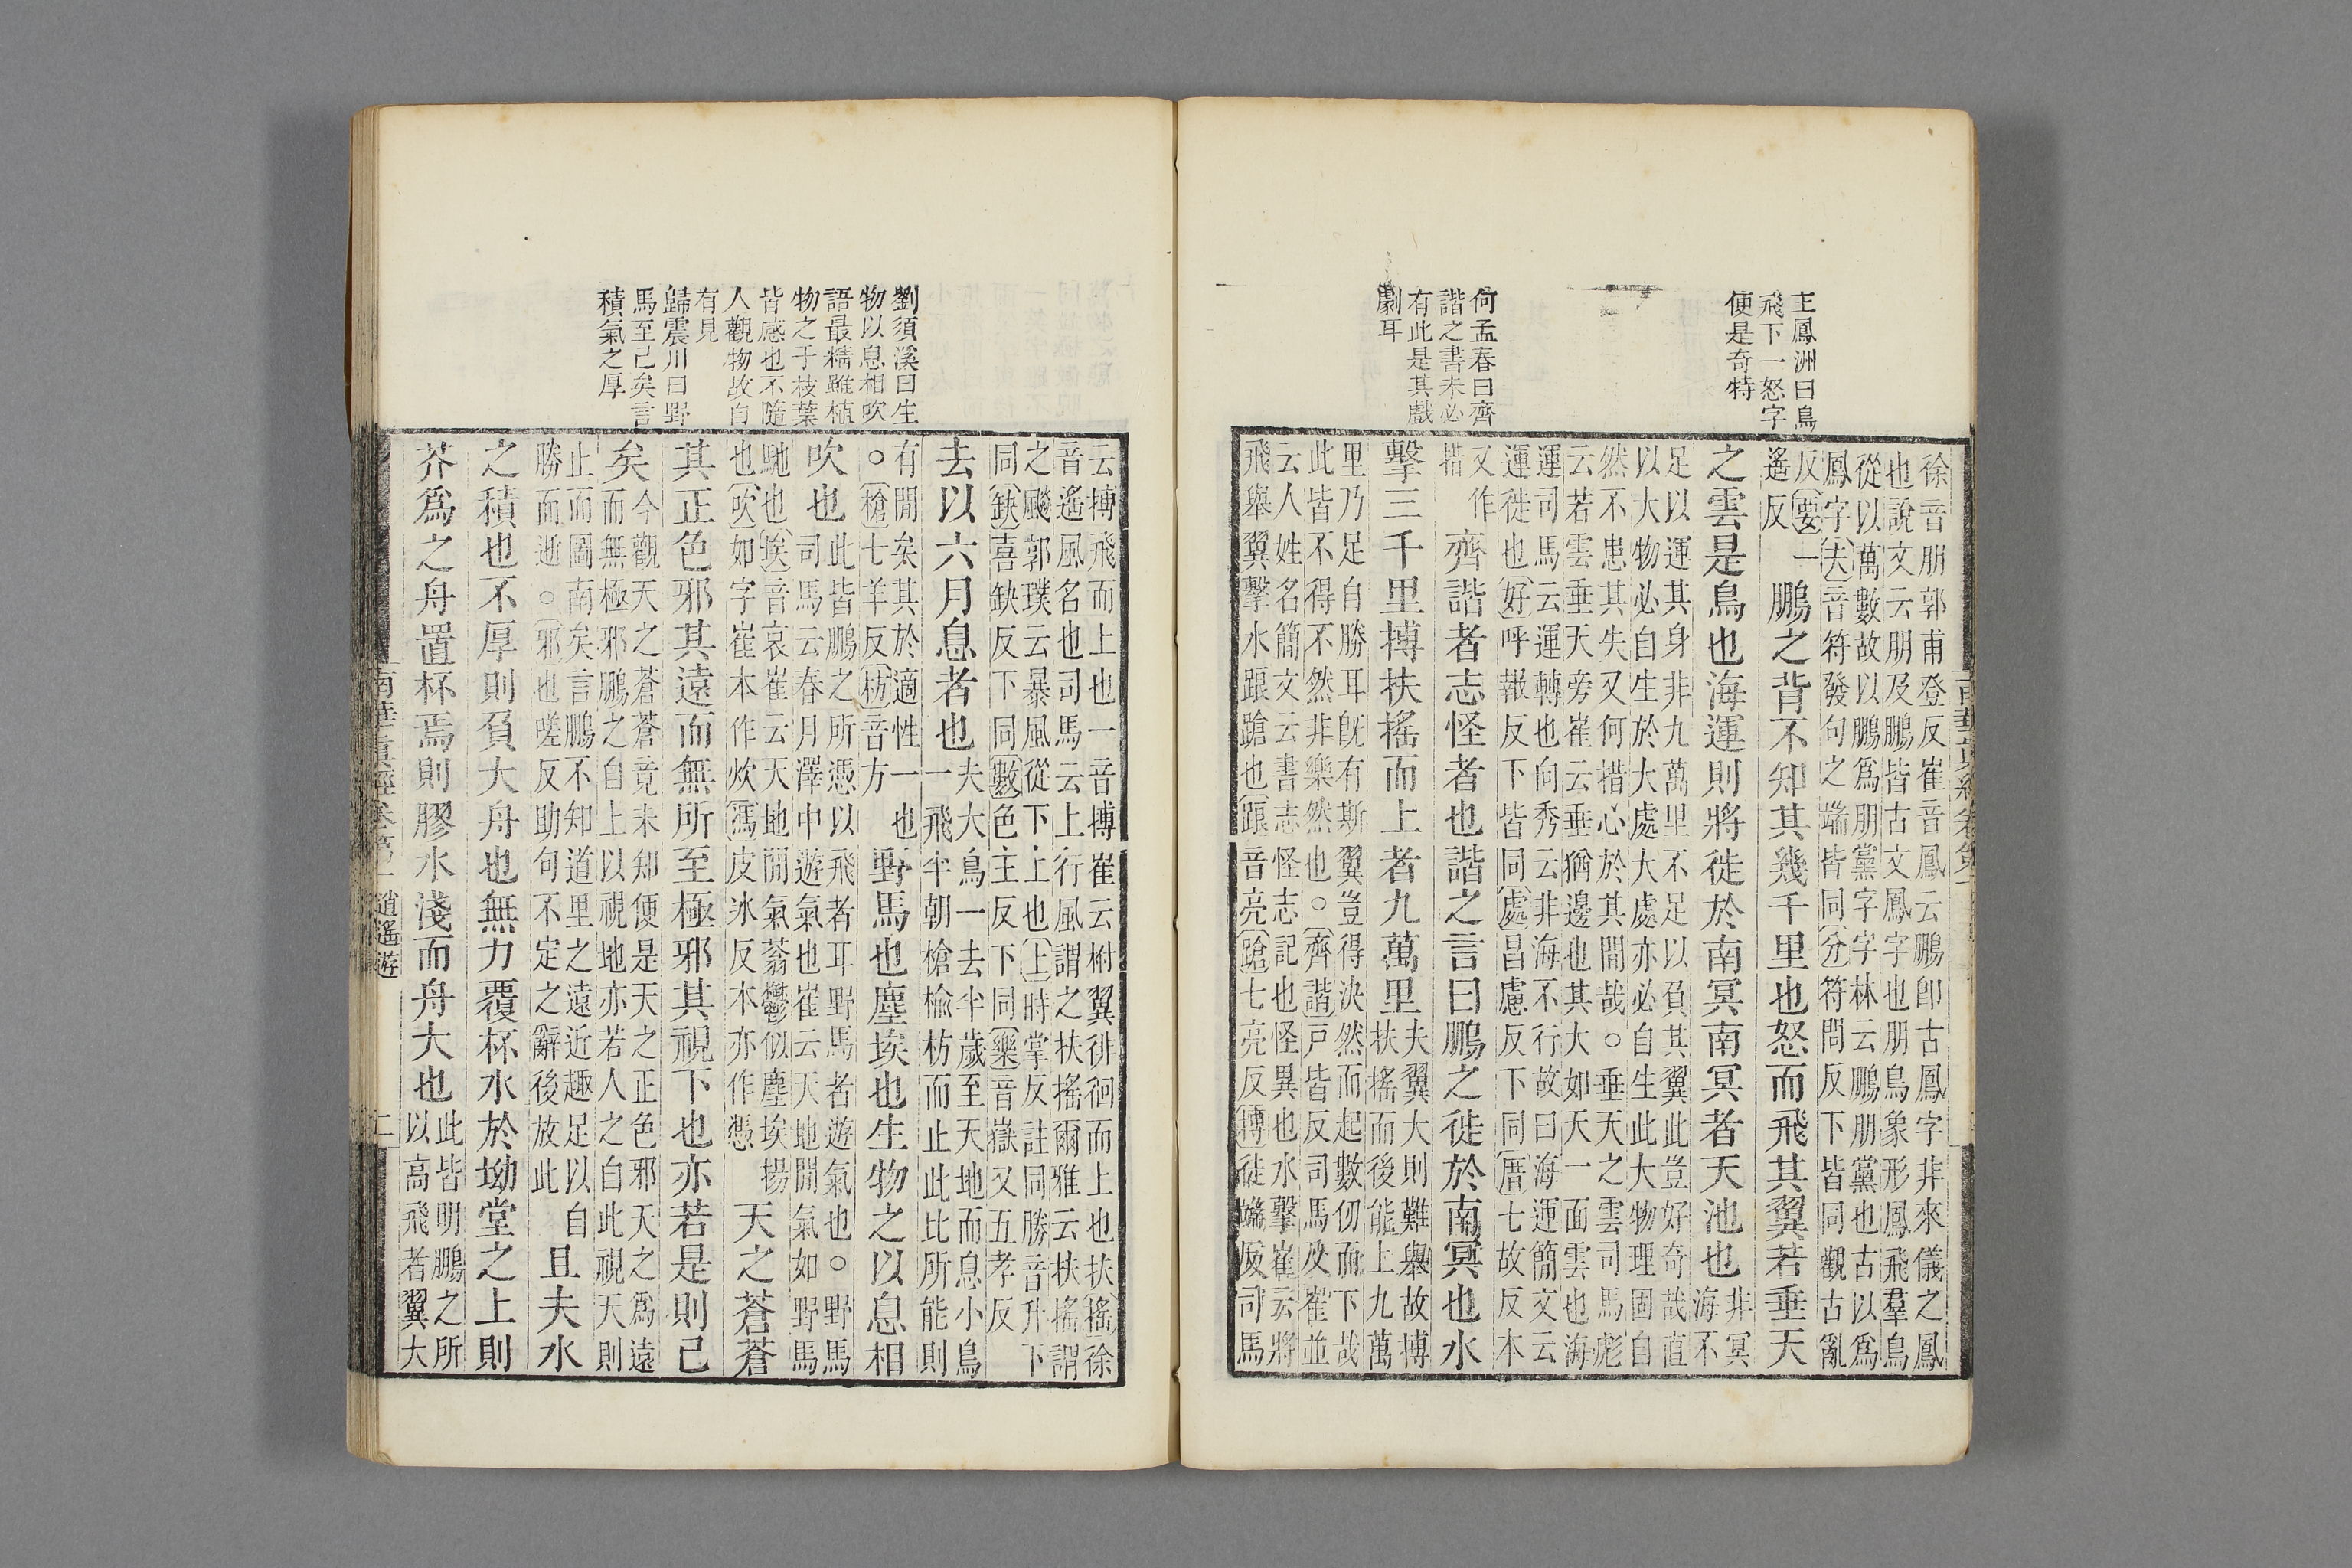 王鳳洲曰鳥
飛下一怒字
便是奇特
何孟春曰齊
諧之書未必
有此是其戲
劇耳
徐音朋郭甫登反崔音鳳云鵬卽古鳳字非來儀之鳳
也說文云朋及鵬皆古文鳳字也朋鳥象形鳳飛羣鳥
從以萬數故以鵬爲朋黨字字林云鵬朋黨也古以爲
鳳字(夫)音符發句之端皆同(分)符問反下皆同觀古亂
反(要)一
遙反
鵬之背不知其幾千里也怒而飛其翼若垂天
之雲是鳥也海運則將徙於南冥南冥者天池也
非冥
海不
足以運其身非九萬里不足以負其翼此豈好奇哉直
以大物必自生於大處大處亦必自生此大物理固自
然不患其失又何措心於其間哉○垂天之雲司馬彪
云若雲垂天旁崔云垂猶邊也其大如天一面雲也海
運司馬云運轉也向秀云非海不行故曰海運簡文云
運徙也(好)呼報反下皆同(處)昌慮反下同(厝)七故反本
又作
措
齊諧者志怪者也諧之言曰鵬之徙於南冥也水
擊三千里搏扶搖而上者九萬里
夫翼大則難舉故搏
扶搖而後能上九萬
里乃足自勝耳旣有斯翼豈得決然而起數仞而下哉
此皆不得不然非樂然也○(齊諧)戶皆反司馬及崔並
云人姓名簡文云書志怪志記也怪異也水擊崔云將
飛舉翼擊水踉蹌也(踉)音亮(蹌)七亮反(搏)徒端反司馬
劉須溪曰生
物以息相吹
語最精雖植
物之于枝葉
皆感也不隨
人觀物故自
有見
歸震川曰野
馬至己矣言
積氣之厚
云搏飛而上也一音搏崔云拊翼徘徊而上也扶(搖)徐
音遙風名也司馬云上行風謂之扶搖爾雅云扶搖謂
之飈郭璞云暴風從下上也(上)時掌反註同勝音升下
同(缺)喜缺反下同(數)色主反下同(樂)音嶽又五孝反
去以六月息者也
夫大鳥一去半歲至天地而息小鳥
一飛半朝槍楡枋而止此比所能則
有閒矣其於適性一也
○(槍)七羊反(枋)音方
野馬也塵埃也生物之以息相
吹也
此皆鵬之所憑以飛者耳野馬者遊氣也○野馬
司馬云春月澤中遊氣也崔云天地閒氣如野馬
馳也(埃)音哀崔云天地閒氣蓊鬱似塵埃揚
也(吹)如字崔本作炊(馮)皮冰反本亦作憑
天之蒼蒼
其正色邪其遠而無所至極邪其視下也亦若是則已
矣
今觀天之蒼蒼竟未知便是天之正色邪天之爲遠
而無極邪鵬之自上以視地亦若人之自此視天則
止而圖南矣言鵬不知道里之遠近趣足以自
勝而逝○(邪)也嗟反助句不定之辭後放此
且夫水
之積也不厚則負大舟也無力覆杯水於坳堂之上則
芥爲之舟置杯焉則膠水淺而舟大也
此皆明鵬之所
以高飛者翼大
南華眞經卷第一 逍遙遊
二